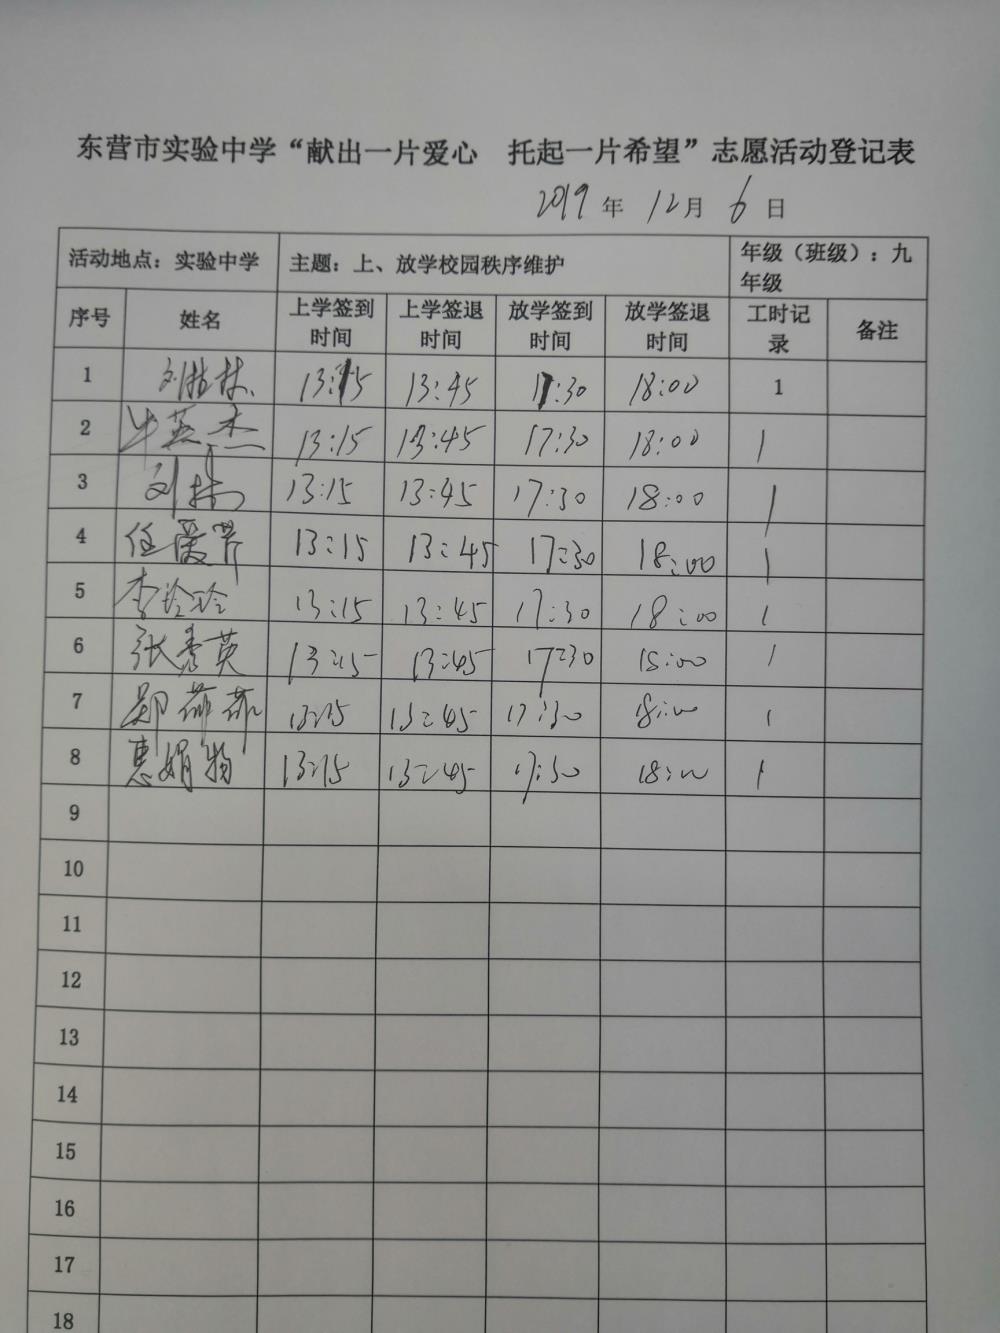 东营市实验中学“献出一片爱心 托起一片希望”志愿活动登记表
2019年12月6日
活动地点：实验中学 主题：上、放学校园秩序维护 年级（班级）：九年级
序号 姓名 上学签到时间 上学签退时间 放学签到时间 放学签退时间 工时记录 备注
1 刘 林 13:15 13:45 17:30 18:00 1
2 牛英杰 13:15 13:45 17:30 18:00 1
3 刘 13:15 13:45 17:30 18:00 1
4 任爱芹 13:15 13:45 17:30 18:00 1
5 李玲玲 13:15 13:45 17:30 18:00 1
6 张秀英 13:15 13:45 17:30 18:00 1
7 郑菲菲 13:15 13:45 17:30 18:00 1
8 惠娟 13:15 13:45 17:30 18:00 1
9
10
11
12
13
14
15
16
17
18